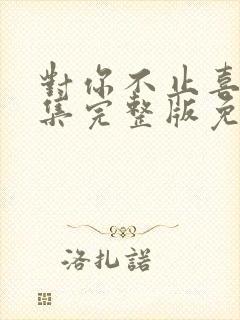 對你不止喜
集完整版免
洛扎諾